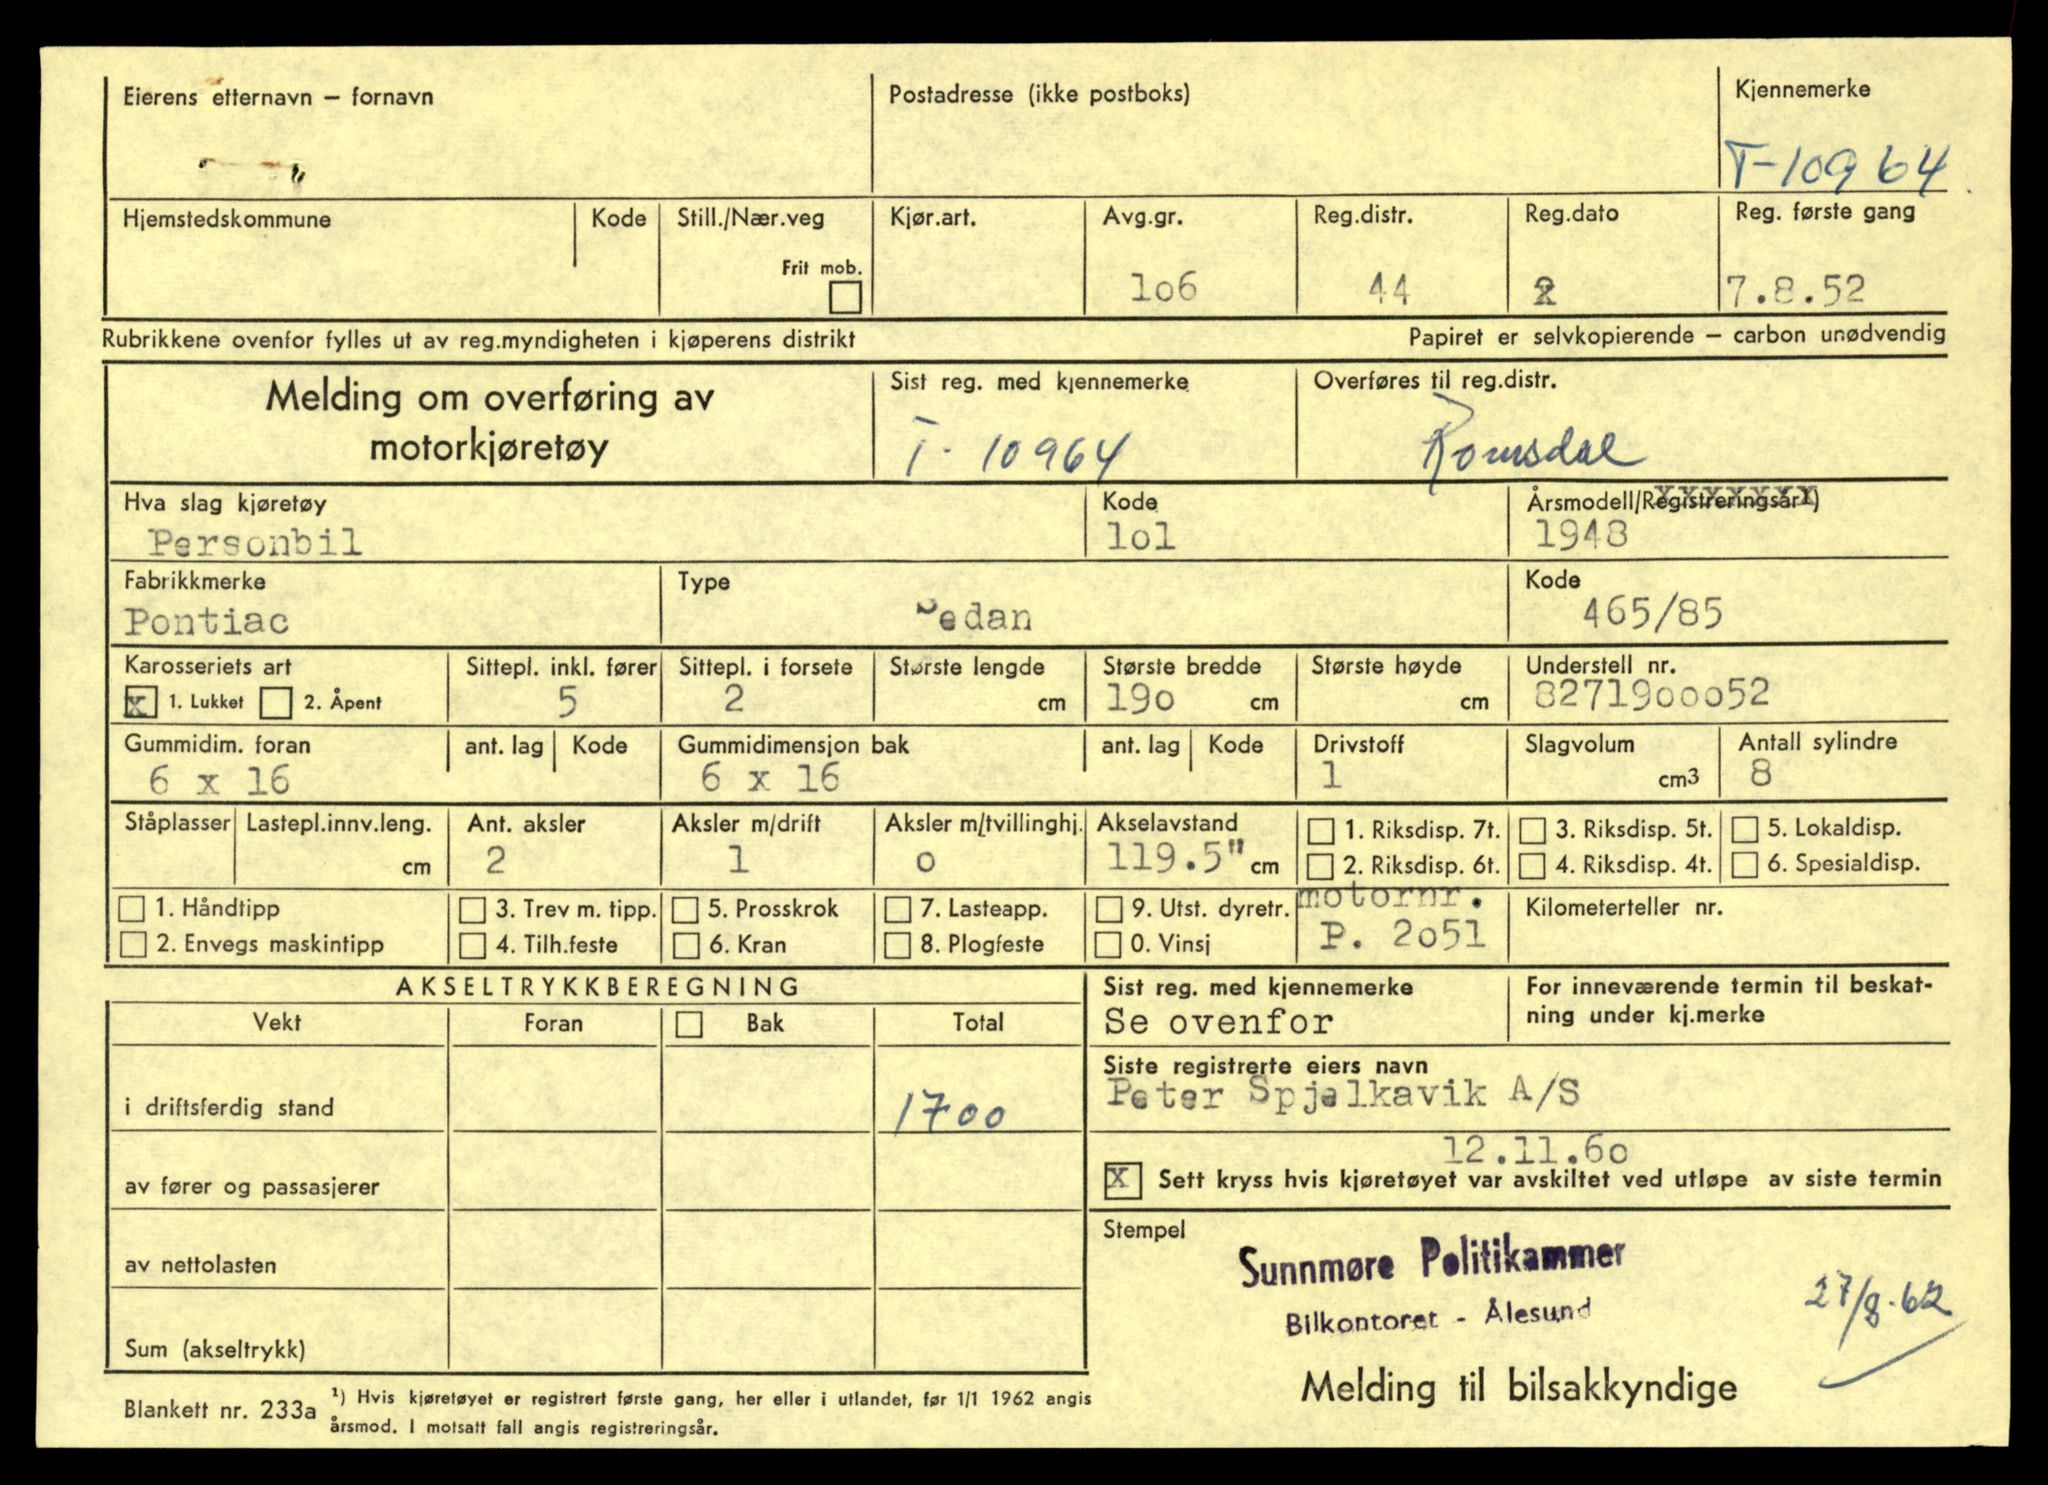 Eierens etternavn – fornavn
Postadresse (ikke postboks)
Kjennemerke
T-10964
Hjemstedskommune
Kode
Still./Nær.veg
Frit mob.
Kjør.art.
Avg.gr.
1o6
Reg.distr.
44
Reg.dato
Reg. første gang
7.8.52
Rubrikkene ovenfor fylles ut av reg.myndigheten i kjøperens distrikt
Papiret er selvkopierende – carbon unødvendig
Melding om overføring av
motorkjøretøy
Sist reg. med kjennemerke
T-10964
Overføres til reg.distr.
Romsdal
Hva slag kjøretøy
Personbil
Kode
1o1
Årsmodell/Registreringsår¹)
1948
Fabrikkmerke
Pontiac
Type
Sedan
Kode
465/85
Karosseriets art
x 1. Lukket 2. Åpent
Sittepl. inkl. fører
5
Sittepl. i forsete
2
Største lengde
cm
Største bredde
19o cm
Største høyde
cm
Understell nr.
82719ooo52
Gummidim. foran
6 x 16
ant. lag
Kode
Gummidimensjon bak
6 x 16
ant. lag
Kode
Drivstoff
1
Slagvolum
cm3
Antall sylindre
8
Ståplasser
Lastepl.innv.leng.
cm
Ant. aksler
2
Aksler m/drift
1
Aksler m/tvillinghj.
o
Akselavstand
119.5" cm
1. Riksdisp. 7t.
3. Riksdisp. 5t.
5. Lokaldisp.
2. Riksdisp. 6t.
4. Riksdisp. 4t.
6. Spesialdisp.
1. Håndtipp
3. Trev m. tipp.
5. Prosskrok
7. Lasteapp.
9. Utst. dyretr.
2. Envegs maskintipp
4. Tilh.feste
6. Kran
8. Plogfeste
0. Vinsj
motornr.
P. 2o51
Kilometerteller nr.
AKSELTRYKKBEREGNING
Vekt
Foran
Bak
Total
i driftsferdig stand
1700
av fører og passasjerer
av nettolasten
Sum (akseltrykk)
Sist reg. med kjennemerke
Se ovenfor
For inneværende termin til beskat-
ning under kj.merke
Siste registrerte eiers navn
Peter Spjelkavik A/S
12.11.6o
X Sett kryss hvis kjøretøyet var avskiltet ved utløpe av siste termin
Stempel
Sunnmøre Politikammer
Bilkontoret - Ålesund
27/8-62
Melding til bilsakkyndige
Blankett nr. 233a
¹) Hvis kjøretøyet er registrert første gang, her eller i utlandet, før 1/1 1962 angis
årsmod. I motsatt fall angis registreringsår.